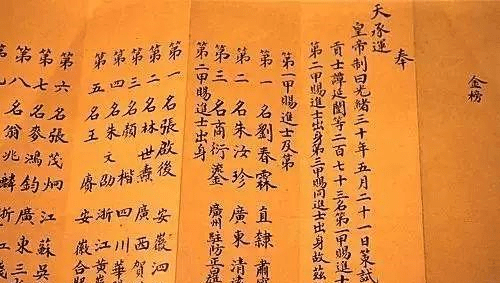 金榜
奉
天承運
皇帝制曰光緒三十年五月二十一日策試
貢士譚延闓等二百七十三名第一甲賜進士
第二甲賜進士出身第三甲賜同進士出身故茲
第一甲賜進士及第
第一名劉春霖 直隸 肅
第二名朱汝珍 廣東 清遠
第三名商衍鎏 廣州駐防正
第二甲賜進士出身
第一名張啟後 安徽 泗
第二名林世焘 廣西 賀
第三名顏楷 四川 華
第四名朱文劭 浙江 黃
第五名王賡 安徽 合
第六名張茂炯 江蘇 吳
第七名麥鴻鈞 廣東 三
第八名翁兆麟 浙江
第九